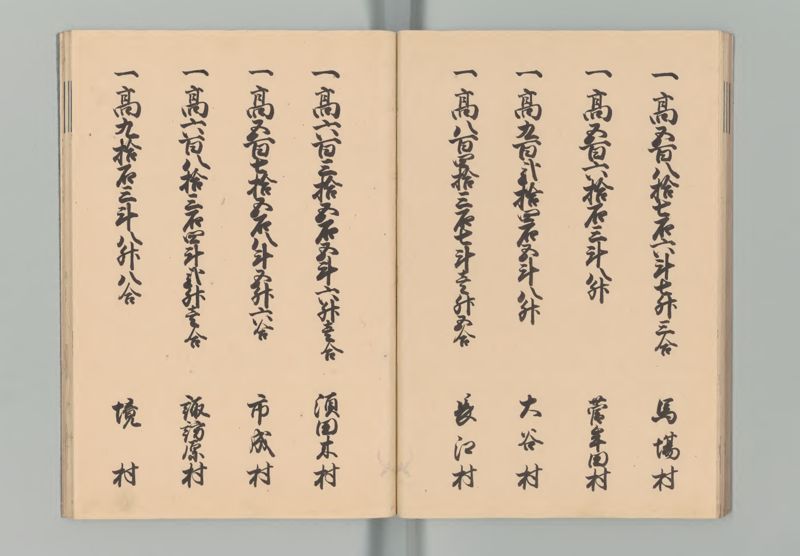 一高五百八拾七石六斗七升三合 馬場村
一高五百六拾石三斗八升 菅牟田村
一高九百弐拾四石五斗八升 大谷村
一高八百四拾三石七斗壱升五合 長江村
一高六百三拾五石五斗六升壱合 須田木村
一高五百七拾五石八斗五升六合 市成村
一高六百八拾三石四斗弐升壱合 諏訪原村
一高九拾石三斗八升八合 境村